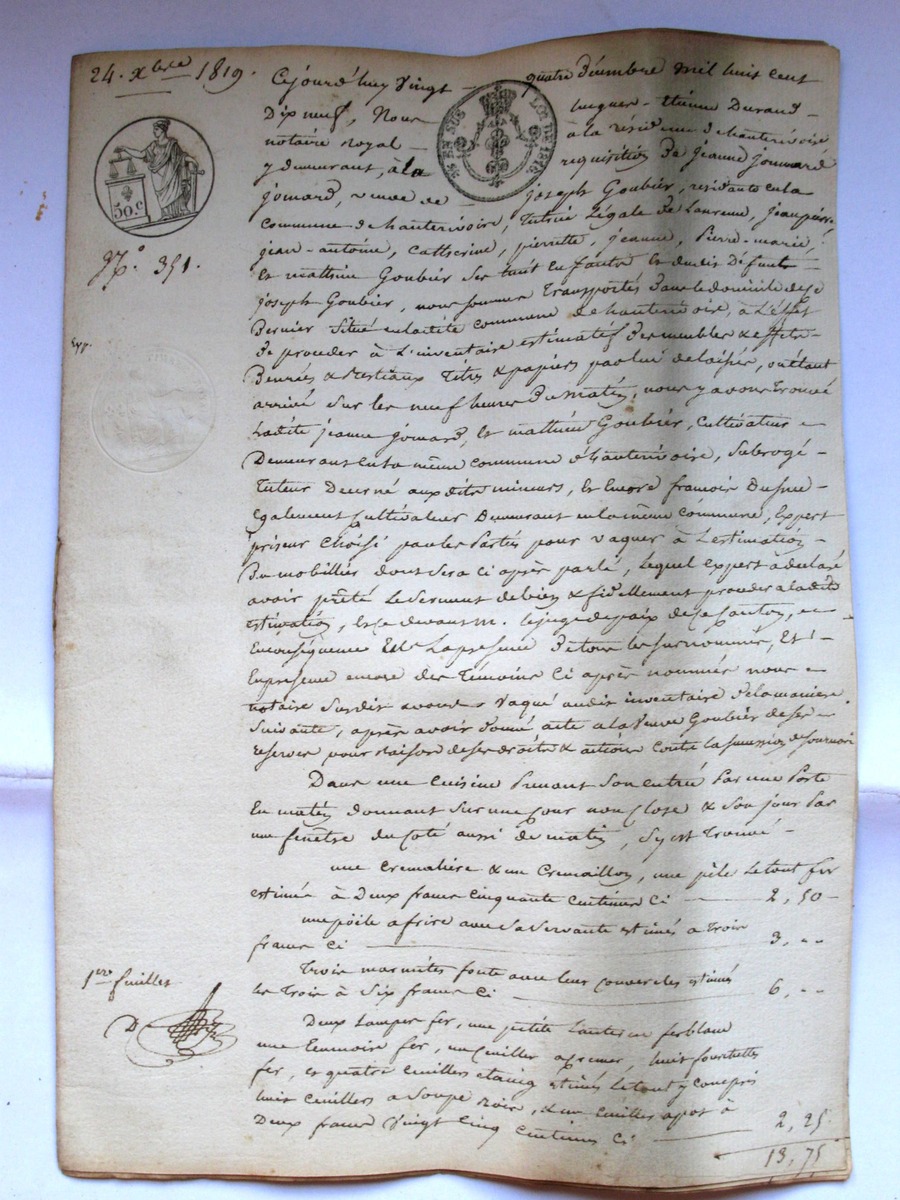 24. xbre 1819.
Cejourd'huy Vingt quatre Décembre mil huit cent
Dix neuf, Nous hugues-étienne Durand
notaire royal à la résidence d'hauterivoire
y demeurant, à la requisition de jeanne jomard
jomard, veuve de joseph Goubier, residante en la
commune d'hauterivoire, Tutrice Légale de Laurence, jean pierre
jean-antoine, Catherine, pierrette, jeanne, Pierre-marie,
et mathieu Goubier ses huit enfants et dudit défunt
joseph Goubier, nous sommes Transportés dans le domicile de ce
Dernier situé en ladite commune d'hauterivoire, à L'effet
de proceder à L'inventaire estimatif des meubles & effets
Denrées & Bestiaux Titres & papiers par lui delaissés, où étant
arrivé sur les neuf heures du matin, nous y avons Trouvé
ladite jeanne jomard, et mathieu Goubier, Cultivateur
Demeurant en la même commune d'hauterivoire, Subrogé
Tuteur Décerné auxdits mineurs, et encore francois
egalement Cultivateur Demeurant en la même commune, Expert
priseur choisi par les Parties pour vaquer à Lestimation
Du mobillier dont sera ci après parlé, Lequel expert à declaré
avoir prêté Le serment de bien & fidellement proceder a ladite
estimation, et ce devant m. Le juge de paix de ce Canton, en
Conséquence et en La présence de tous les surnommés, Et
En présence encore des Témoins ci après nommés nous
notaire susdit avons Vaqué audit inventaire de la maniere
Suivante, après avoir donné acte a la veuve Goubier de ses
reserves pour raison de ses droits & actions contre la succession de son mari
Dans une cuisine Prenant son entrée Par une Porte
En matin donnant sur une Cour non Close & Son jour Par
une fenêtre du coté aussi de matin, S'y est Trouvé
une cremalière & un Cremaillon, une pêle Le tout fer
estimés à Deux francs cinquante centimes Ci 2, 50
une poële a frire avec sa servante estimés a Trois
francs Ci 3, ..
Trois marmites fonte avec leurs couvercles estimés
les Trois à Six francs Ci 6, ..
Deux Lampes fer, une petite Lanterne ferblanc
une Ecumoire fer, un cuiller huit fourchettes
fer, et quatre cuillers etaing estimés Le tout y compris
huit cuillers a soupe & un cuiller a pot à
Deux francs Vingt Cinq Centimes Ci 2, 25
13, 75
50.c
25 EN SUS
LOI DE 1816
No. 351.
Exp.
1er feuillet
D